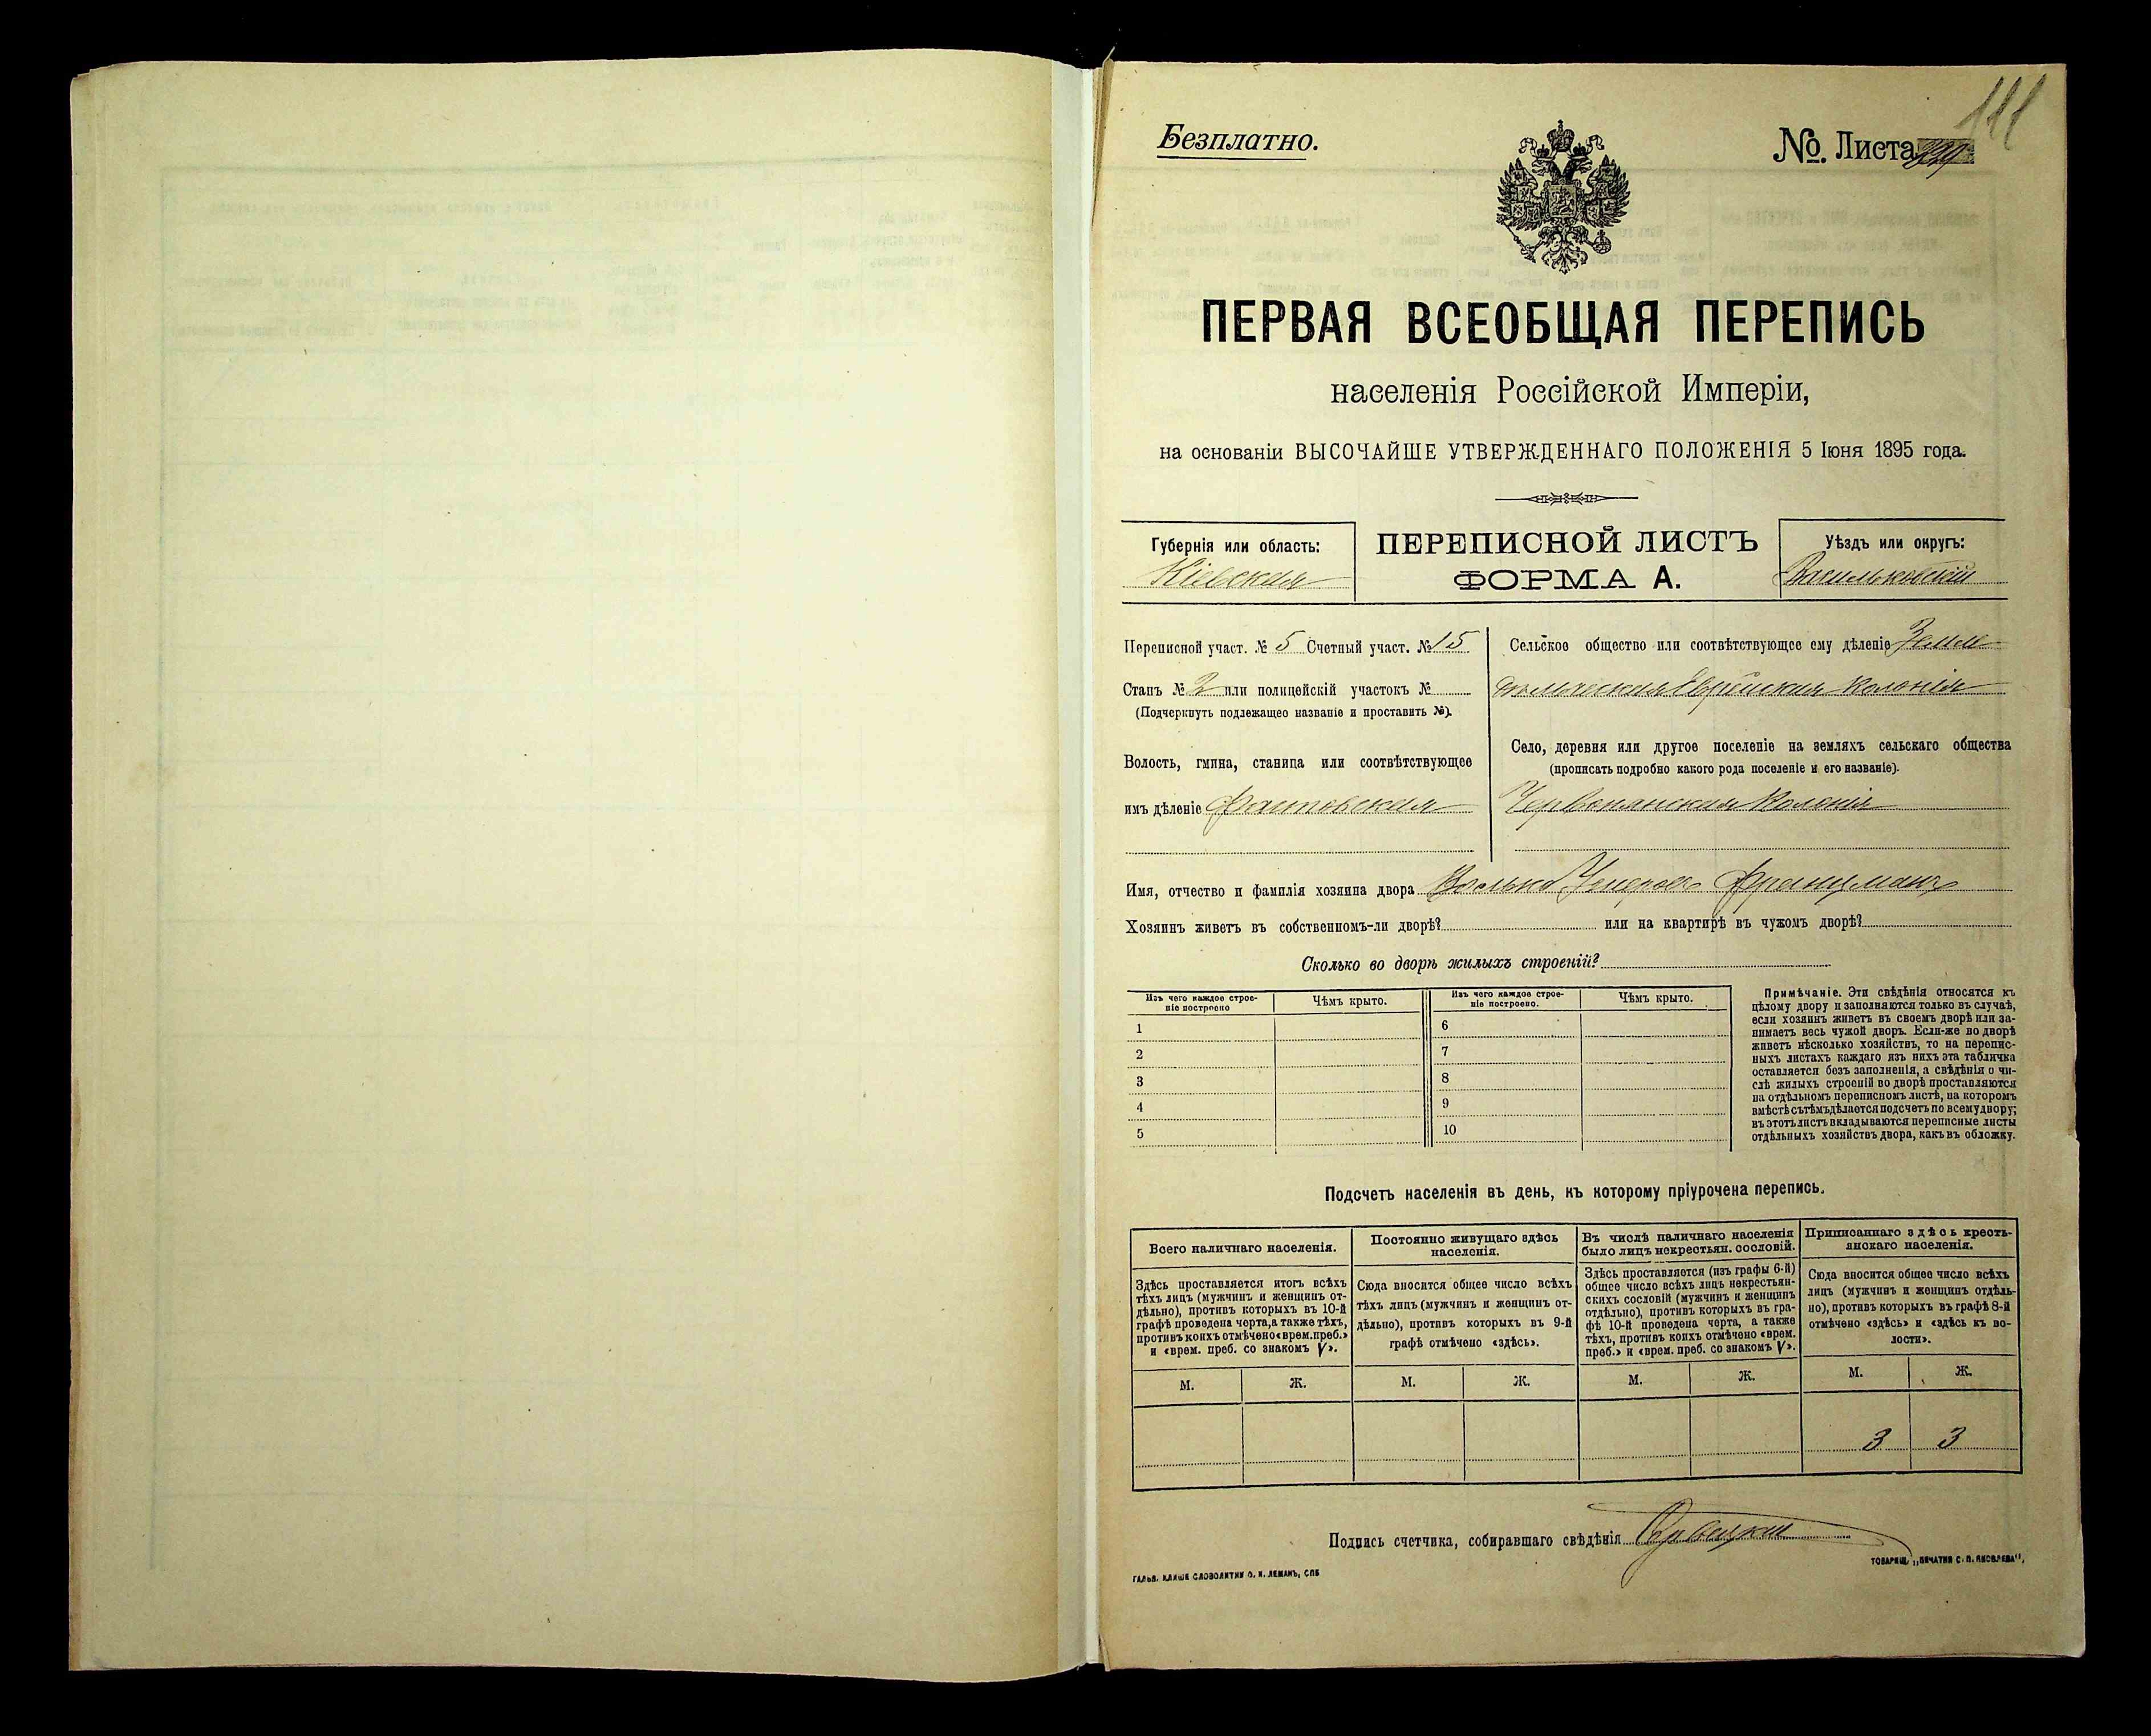 111
Безплатно.
№. Листа
ПЕРВАЯ ВСЕОБЩАЯ ПЕРЕПИСЬ
населенія Россійской Имперіи,
на основаніи ВЫСОЧАЙШЕ УТВЕРЖДЕННАГО ПОЛОЖЕНІЯ 5 Іюня 1895 года.
Губернія или область:
Кіевская
ПЕРЕПИСНОЙ ЛИСТЪ
ФОРМА А.
Уѣздъ или округъ:
Васильковскій
Переписной участ. № 5 Счетный участ. № 15
Станъ № 2 или полицейскій участокъ №
(Подчеркнуть подлежащее названіе и проставить №).
Волость, гмина, станица или соотвѣтствующее
имъ дѣленіе Фастовская
Сельское общество или соотвѣтствующее ему дѣленіе Земле-
дѣльческая Еврейская колонія
Село, деревня или другое поселеніе на земляхъ сельскаго общества
(прописать подробно какого рода поселеніе и его названіе).
Червонянская Колонія
Имя, отчество и фамилія хозяина двора Волько Французманъ
Хозяинъ живетъ въ собственномъ-ли дворѣ? или на квартирѣ въ чужомъ дворѣ?
Сколько во дворѣ жилыхъ строеній?
Изъ чего каждое строе-
ніе построено
Чѣмъ крыто.
Изъ чего каждое строе-
ніе построено.
Чѣмъ крыто.
1
6
2
7
3
8
4
9
5
10
Примѣчаніе. Эти свѣдѣнія относятся къ
цѣлому двору и заполняются только въ случаѣ,
если хозяинъ живетъ въ своемъ дворѣ или за-
нимаетъ весь чужой дворъ. Если-же во дворѣ
живетъ нѣсколько хозяйствъ, то на перепис-
ныхъ листахъ каждаго изъ нихъ эта табличка
оставляется безъ заполненія, а свѣдѣнія о чи-
слѣ жилыхъ строеній во дворѣ проставляются
на отдѣльномъ переписномъ листѣ, на которомъ
вмѣстѣ съ тѣмъ дѣлается подсчетъ по всему двору;
въ этотъ листъ вкладываются переписные листы
отдѣльныхъ хозяйствъ двора, какъ въ обложку.
Подсчетъ населенія въ день, къ которому пріурочена перепись.
Всего наличнаго населенія.
Здѣсь проставляется итогъ всѣхъ
тѣхъ лицъ (мужчинъ и женщинъ от-
дѣльно), противъ которыхъ въ 10-й
графѣ проведена черта, а также тѣхъ,
противъ коихъ отмѣчено «врем. преб.»
и «врем. преб. со знакомъ V».
М. Ж.
Постоянно живущаго здѣсь
населенія.
Сюда вносится общее число всѣхъ
тѣхъ лицъ (мужчинъ и женщинъ от-
дѣльно), противъ которыхъ въ 9-й
графѣ отмѣчено «здѣсь».
М. Ж.
Въ числѣ наличнаго населенія
было лицъ некрестьян. сословій.
Здѣсь проставляется (изъ графы 6-й)
общее число всѣхъ лицъ некрестьян-
скихъ сословій (мужчинъ и женщинъ
отдѣльно), противъ которыхъ въ гра-
фѣ 10-й проведена черта, а также
тѣхъ, противъ коихъ отмѣчено «врем.
преб.» и «врем. преб. со знакомъ V».
М. Ж.
Приписаннаго здѣсь кресть-
янскаго населенія.
Сюда вносится общее число всѣхъ
лицъ (мужчинъ и женщинъ отдѣль-
но), противъ которыхъ въ графѣ 8-й
отмѣчено «здѣсь» и «здѣсь къ во-
лости».
М. Ж.
3 3
Подпись счетчика, собиравшаго свѣдѣнія
ГАЛЬВ. КЛИШЕ СЛОВОЛИТНИ О. И. ЛЕМАНЪ, СПБ
ТОВАРИЩ. „ПЕЧАТНЯ С. П. ЯКОВЛЕВА",